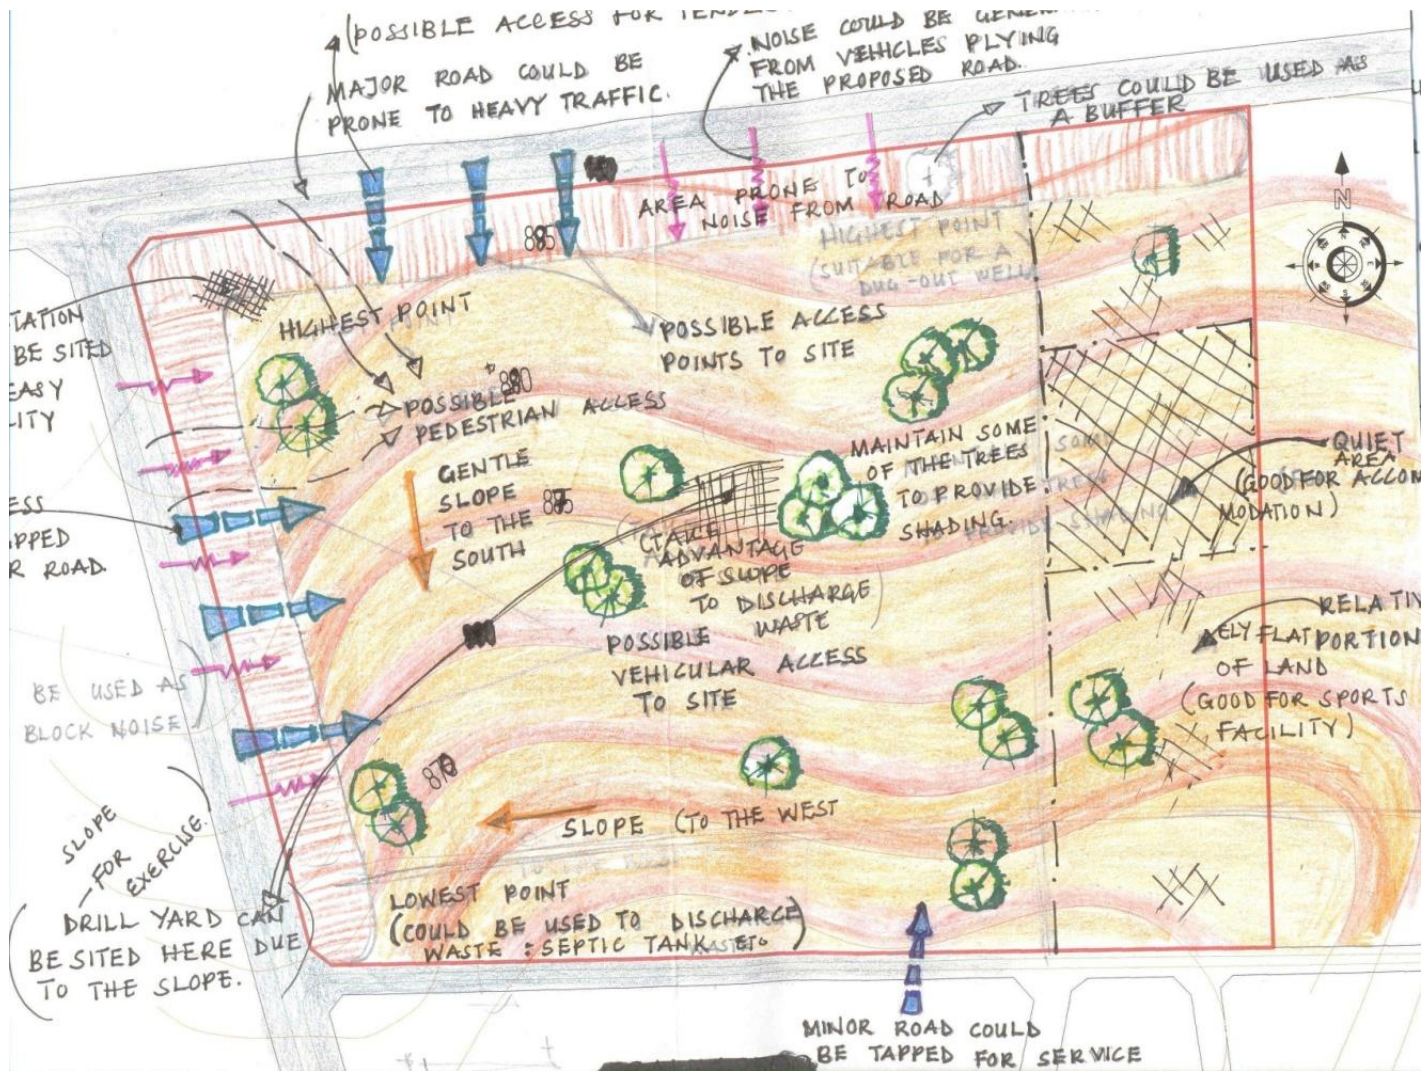 (POSSIBLE ACCESS FOR
MAJOR ROAD COULD BE
PRONE TO HEAVY TRAFFIC.
NOISE COULD BE
FROM VEHICLES PLYING
THE PROPOSED ROAD.
TREES COULD BE USED AS
A BUFFER
AREA PRONE TO
NOISE FROM ROAD
885
HIGHEST POINT
(SUITABLE FOR A
DUG-OUT WELL
N
HIGHEST POINT
POSSIBLE ACCESS
POINTS TO SITE
BE SITED
880
POSSIBLE
PEDESTRIAN ACCESS
GENTLE
SLOPE
TO THE
SOUTH
875
MAINTAIN SOME
OF THE TREES
TO PROVIDE
SHADING.
QUIET
AREA
(GOOD FOR ACCOM
MODATION)
ROAD.
(TAKE
ADVANTAGE
OF SLOPE
TO DISCHARGE
WASTE
POSSIBLE
VEHICULAR ACCESS
TO SITE
RELATIV
ELY FLAT PORTION
OF LAND
(GOOD FOR SPORTS
FACILITY)
BE USED AS
BLOCK NOISE
870
SLOPE (TO THE WEST
SLOPE
FOR
EXERCISE.
LOWEST POINT
(COULD BE USED TO DISCHARGE
WASTE : SEPTIC TANK ETC
(DRILL YARD CAN
BE SITED HERE DUE
TO THE SLOPE.
MINOR ROAD COULD
BE TAPPED FOR SERVICE